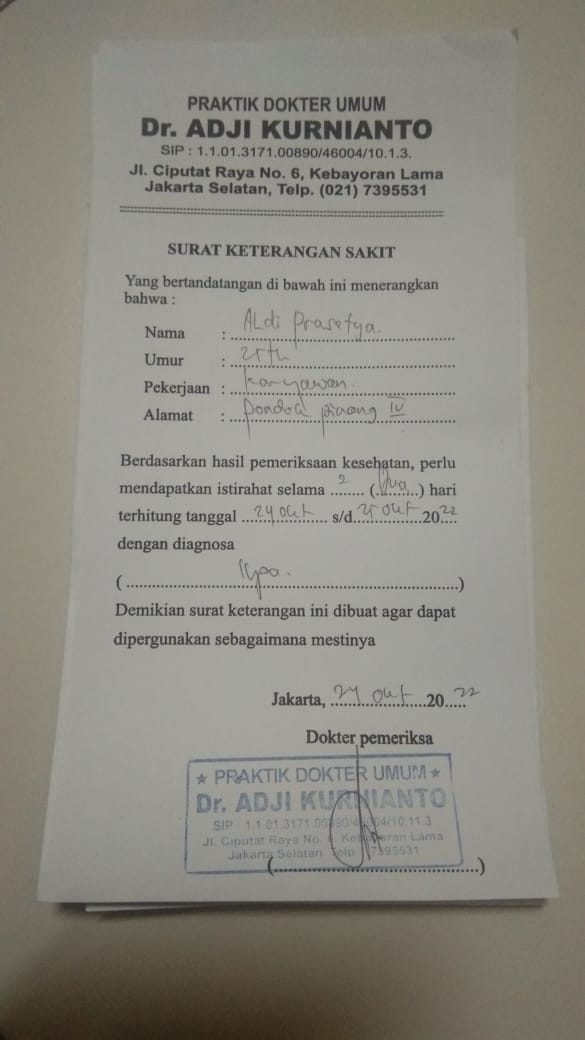 PRAKTIK DOKTER UMUM
Dr. ADJI KURNIANTO
SIP : 1.1.01.3171.00890/46004/10.1.3.
Jl. Ciputat Raya No. 6, Kebayoran Lama
Jakarta Selatan, Telp. (021) 7395531
SURAT KETERANGAN SAKIT
Yang bertandatangan di bawah ini menerangkan
bahwa :
Nama : ALdi Prasetya.
Umur : 25 th
Pekerjaan : karyawan.
Alamat : pondok pinang IV
Berdasarkan hasil pemeriksaan kesehatan, perlu
mendapatkan istirahat selama 2 (Dua) hari
terhitung tanggal 24 okt s/d 25 okt 2022
dengan diagnosa
( )
Demikian surat keterangan ini dibuat agar dapat
dipergunakan sebagaimana mestinya
Jakarta, 24 okt 2022
Dokter pemeriksa
★ PRAKTIK DOKTER UMUM ★
Dr. ADJI KURNIANTO
SIP : 1.1.01.3171.00890/46004/10.11.3
Jl. Ciputat Raya No. Kebayoran Lama
Jakarta Selatan Telp. 7395531
( )